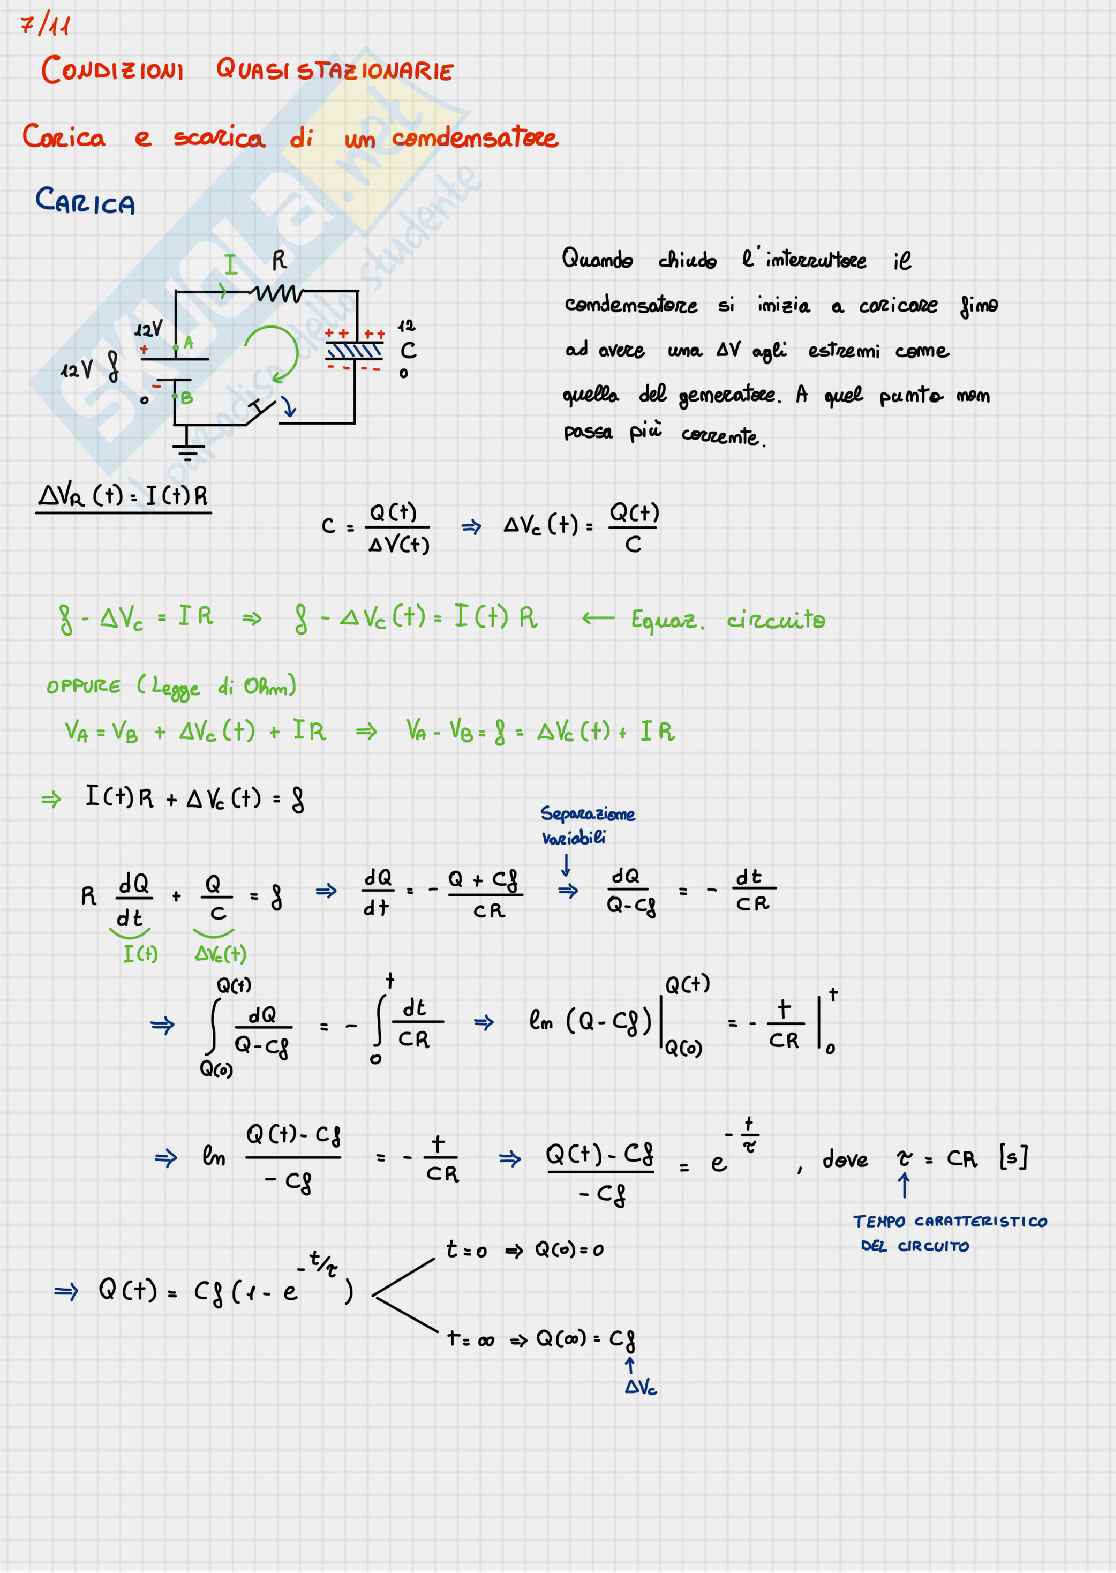 7/11
CONDIZIONI QUASISTAZIONARIE
Carica e scarica di un condensatore
CARICA
I R
12V A + + + + 12
12V f + C
- B - - - - 0
0
Quando chiudo l'interruttore il
condensatore si inizia a caricare fino
ad avere una ΔV agli estremi come
quella del generatore. A quel punto non
passa più corrente.
SKUOLA.net
il paradiso dello studente
ΔV_R (t) = I(t) R
C = Q(t) / ΔV(t) ⇒ ΔV_C (t) = Q(t) / C
f - ΔV_C = I R ⇒ f - ΔV_C (t) = I(t) R ← Equaz. circuito
OPPURE (Legge di Ohm)
V_A = V_B + ΔV_C (t) + I R ⇒ V_A - V_B = f = ΔV_C (t) + I R
⇒ I(t) R + ΔV_C (t) = f
Separazione
variabili
R dQ/dt + Q/C = f ⇒ dQ/dt = - (Q + Cf)/CR ⇒ dQ/(Q - Cf) = - dt/CR
I(t) ΔV_C (t)
⇒ ∫_{Q(0)}^{Q(t)} dQ/(Q - Cf) = - ∫_0^t dt/CR ⇒ ln (Q - Cf) |_{Q(0)}^{Q(t)} = - t/CR |_0^t
⇒ ln (Q(t) - Cf)/(- Cf) = - t/CR ⇒ (Q(t) - Cf)/(- Cf) = e^{- t/τ} , dove τ = CR [s]
TEMPO CARATTERISTICO
DEL CIRCUITO
t = 0 ⇒ Q(0) = 0
⇒ Q(t) = Cf (1 - e^{- t/τ})
t = ∞ ⇒ Q(∞) = Cf
ΔV_C